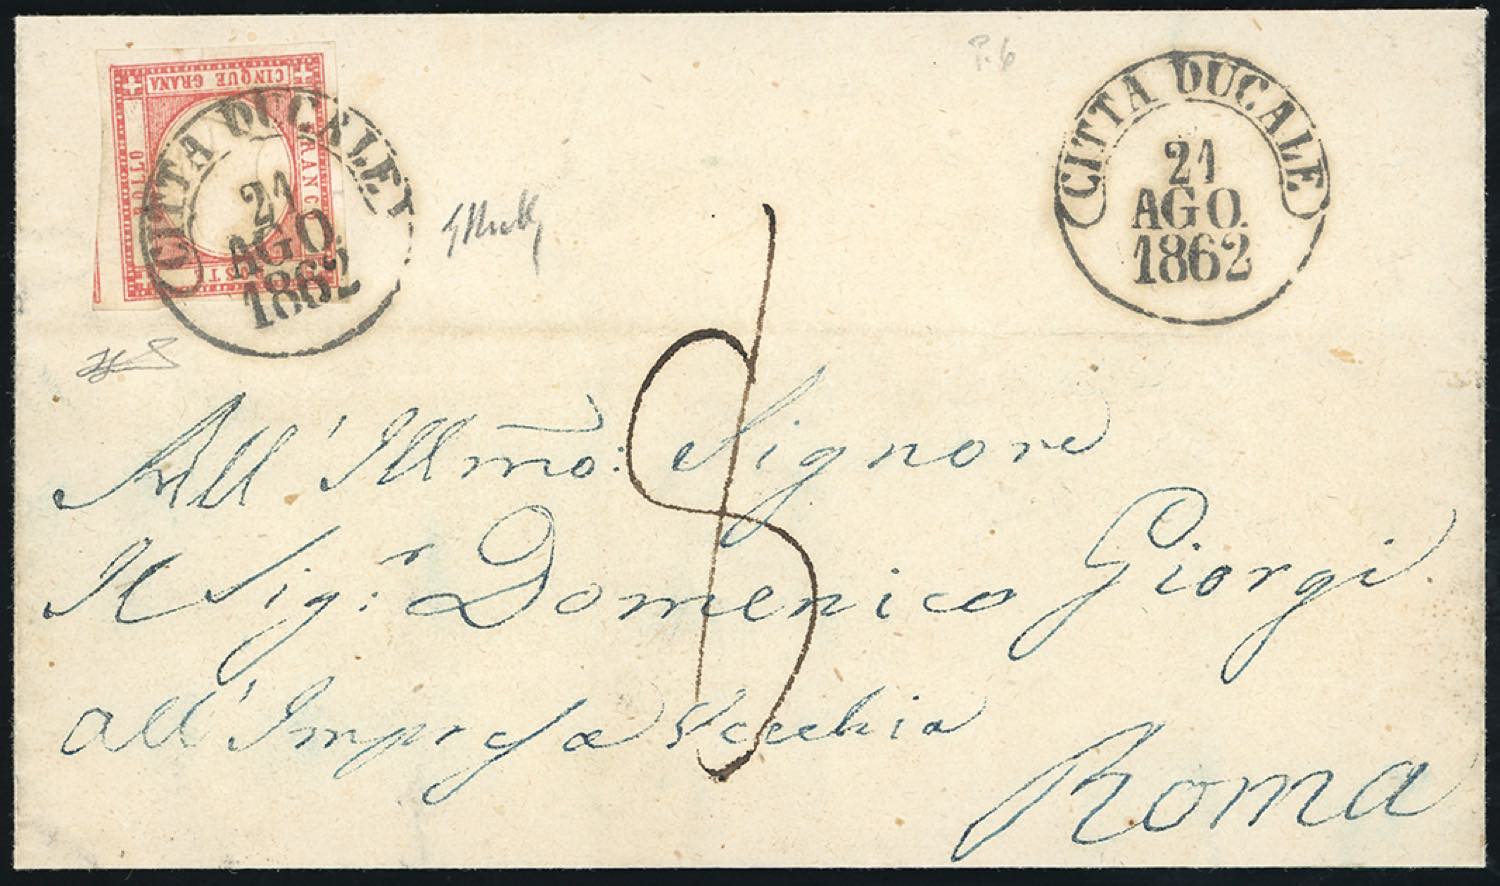 CINQUE GRANA
BOLLO
FRANCO
POSTE
CITTA DUCALE
21
AGO.
1862
CITTA DUCALE
21
AGO.
1862
8
All' Illmo: Signore
Il Sig:r Domenico Giorgi
all' Impresa Vecchia
Roma